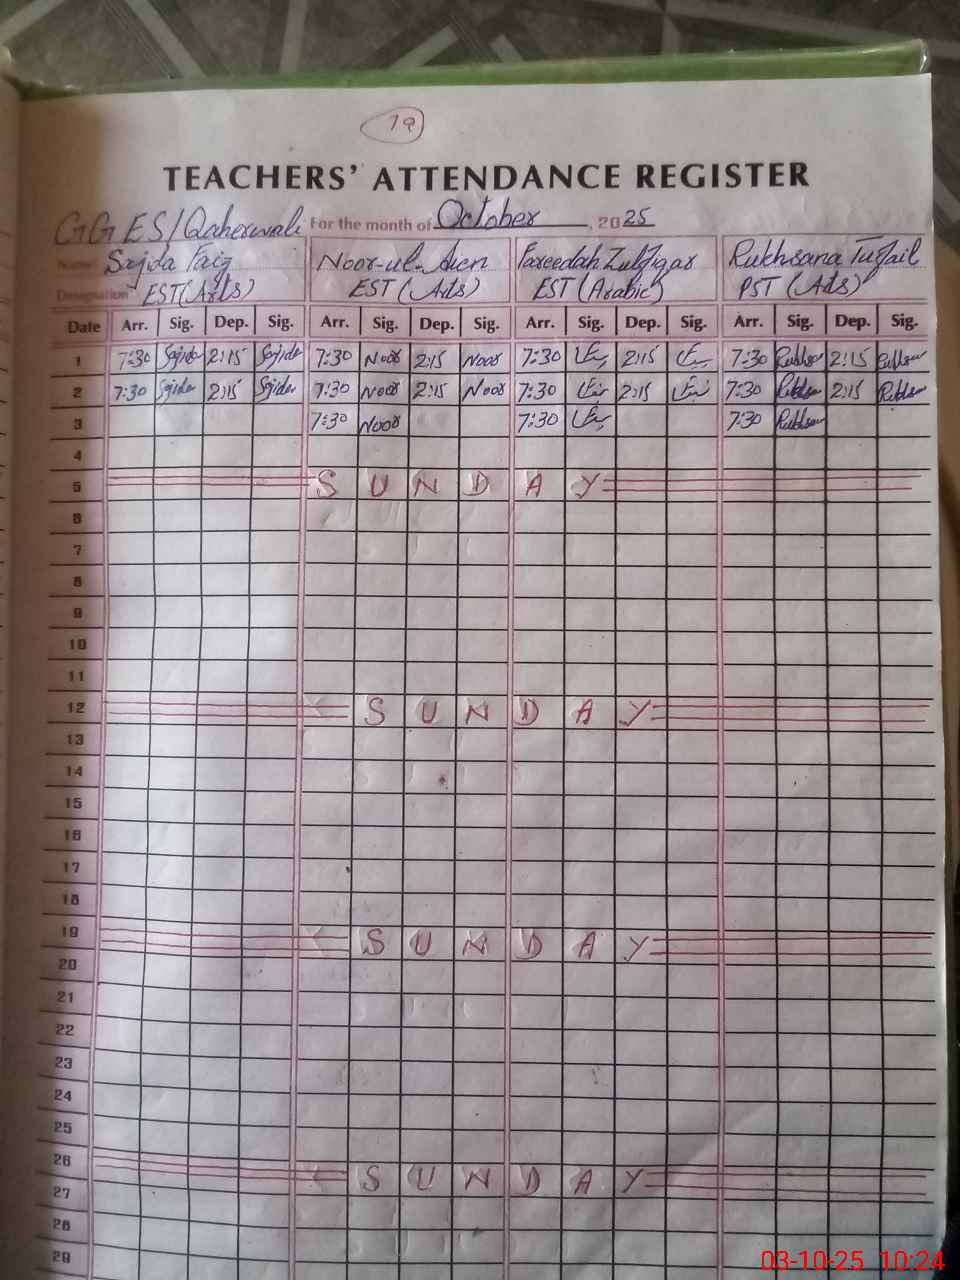 19
TEACHERS' ATTENDANCE REGISTER
GGES/Qaherwali For the month of October, 2025
Name Sajda Faiz Noor-ul-Aien Fareedah Zulfiqar Rukhsana Tufail
Designation EST (Arts) EST (Arts) EST (Arabic) PST (Arts)
Date Arr. Sig. Dep. Sig. Arr. Sig. Dep. Sig. Arr. Sig. Dep. Sig. Arr. Sig. Dep. Sig.
1 7:30 Sajida 2:15 Sajida 7:30 Noor 2:15 Noor 7:30 2:15 7:30 Rukhsa 2:15 Rukhsa
2 7:30 Sajida 2:15 Sajida 7:30 Noor 2:15 Noor 7:30 2:15 7:30 Rukhsa 2:15 Rukhsa
3 7:30 Noor 7:30 7:30 Rukhsa
4
5 SUNDAY
6
7
8
9
10
11
12 SUNDAY
13
14
15
16
17
18
19 SUNDAY
20
21
22
23
24
25
26 SUNDAY
27
28
29
03-10-25 10:24